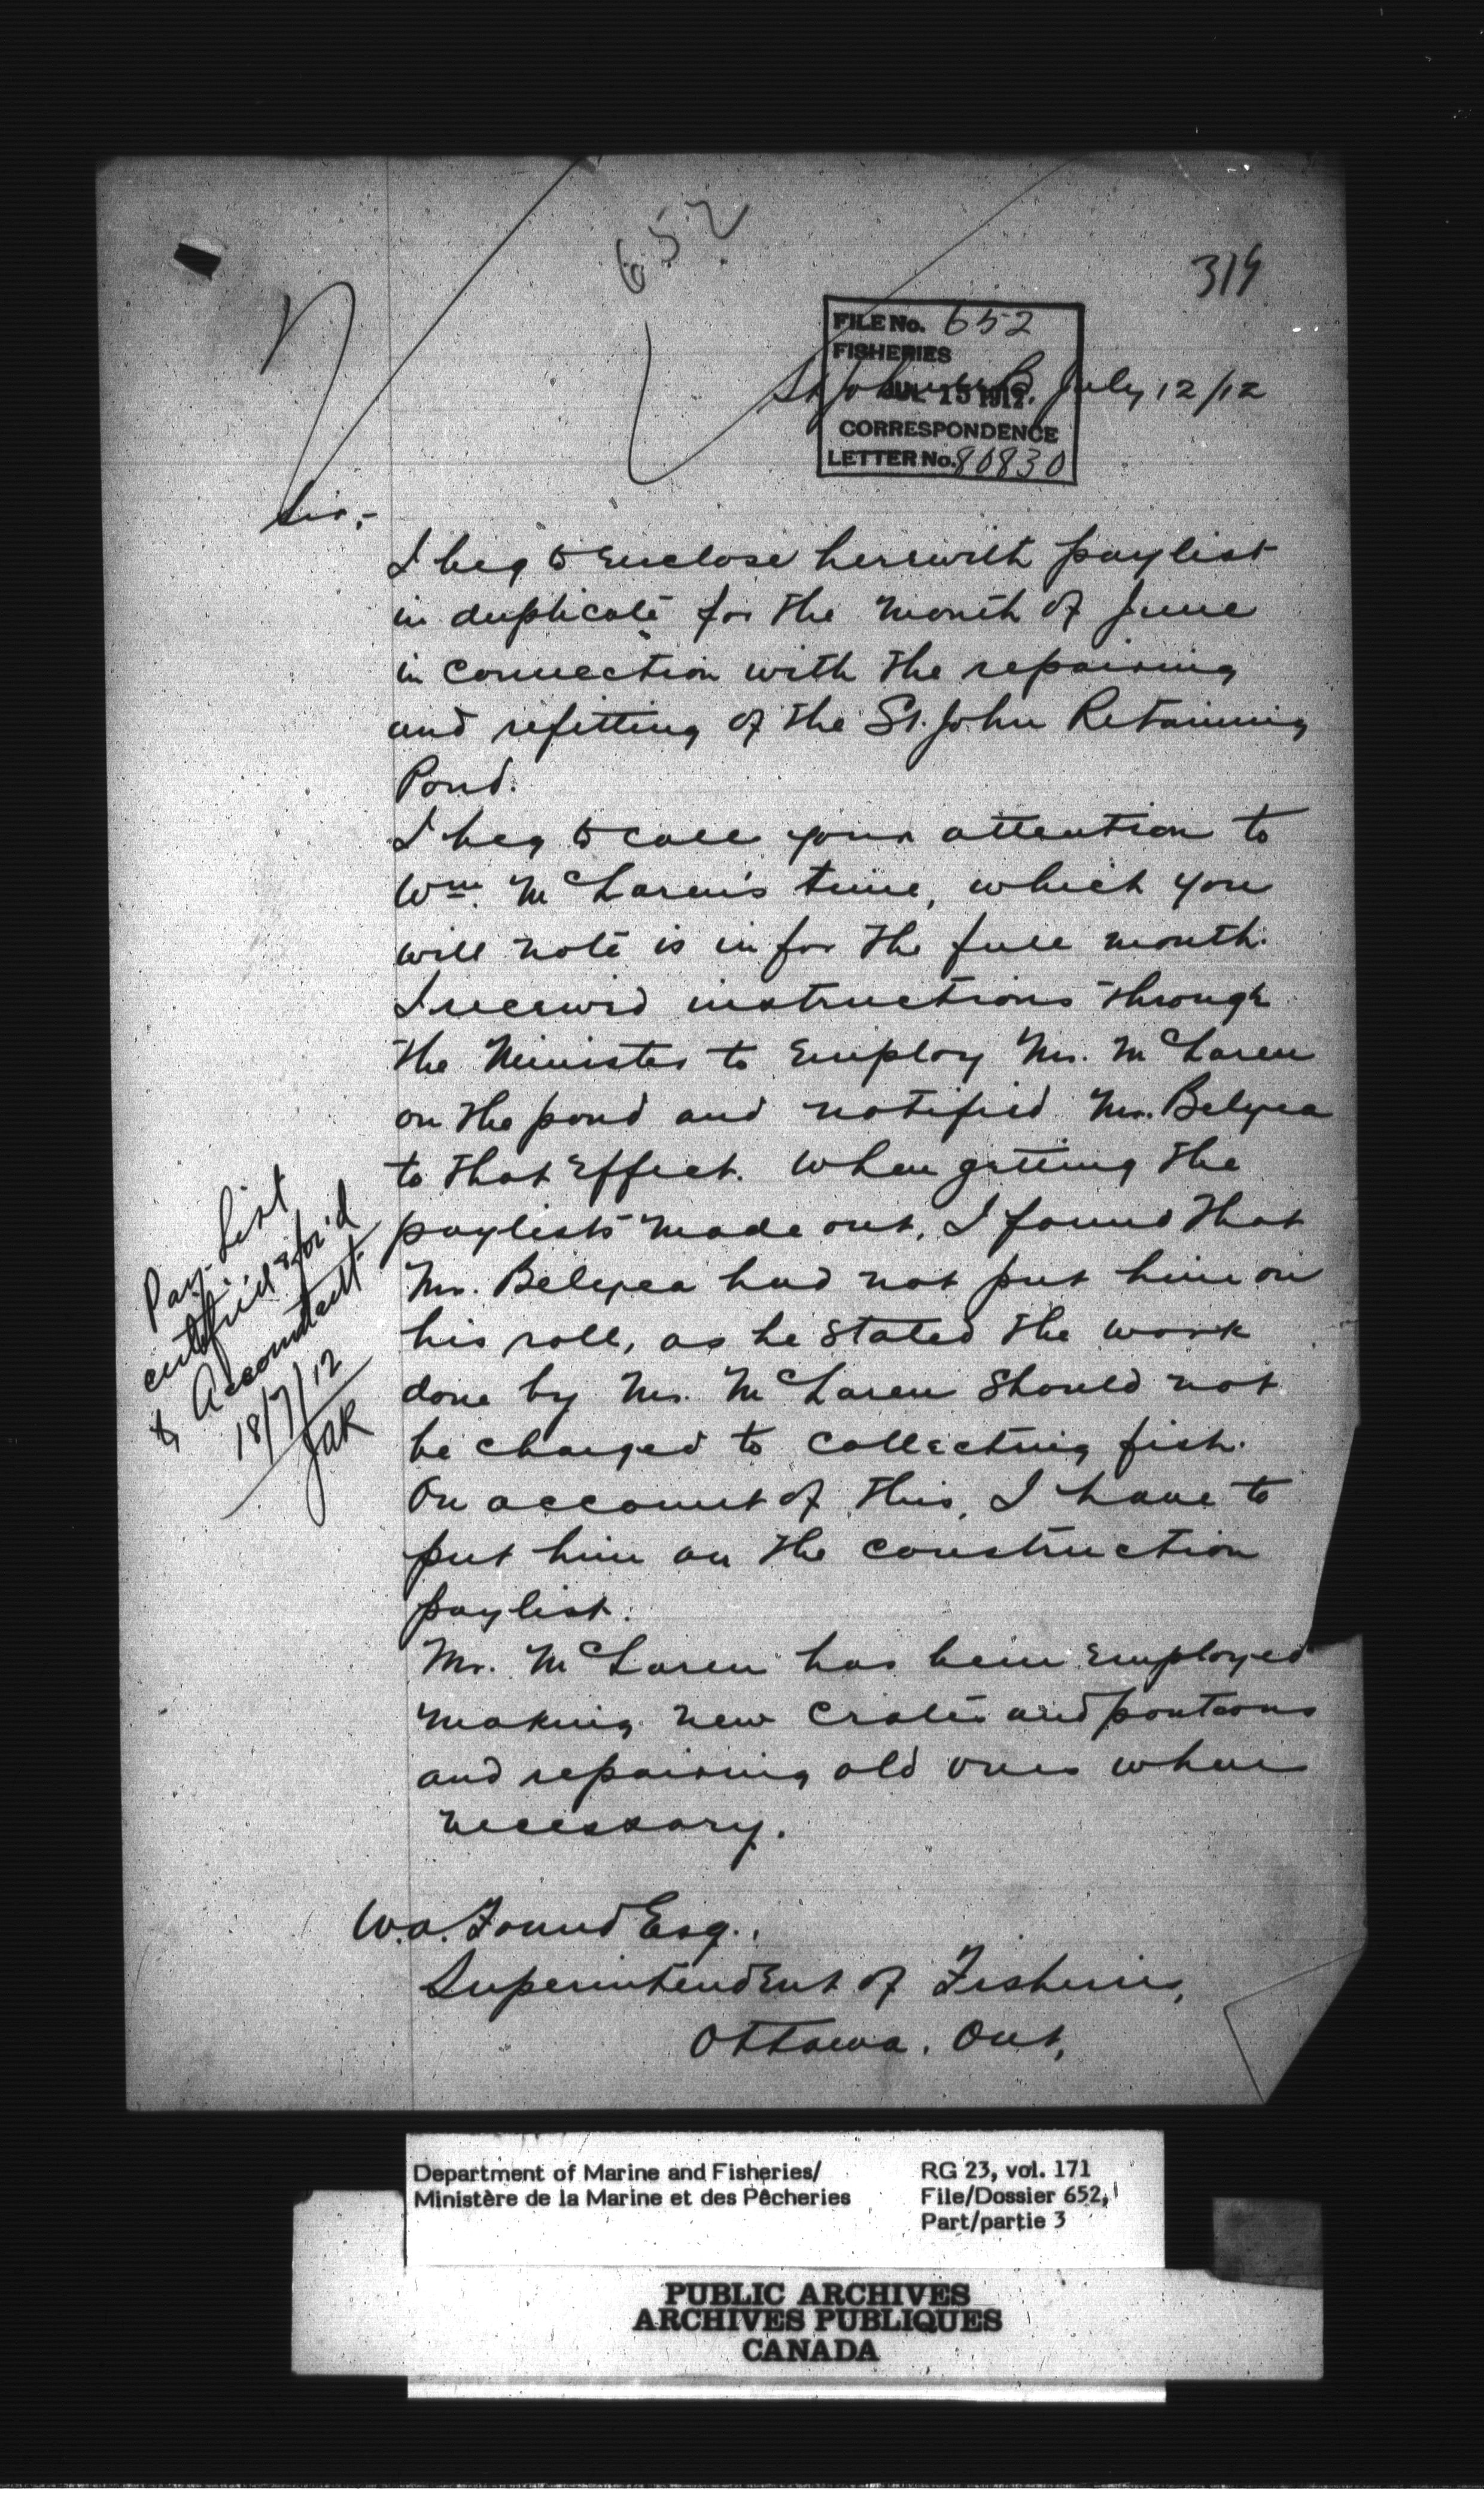 652
319
FILE No. 652
FISHERIES
St John N.B. July 12/12
JUL 15 1912
CORRESPONDENCE
LETTER No. 80830
Sir,-
I beg to enclose herewith paylist
in duplicate for the month of June
in connection with the repairing
and refitting of the St. John Retaining
Pond.
I beg to call your attention to
Wm. McLaren's time, which you
will note is in for the full month.
I received instructions through
the Minister to employ Mr. McLaren
on the pond and notified Mr. Belyea
to that effect. When getting the
paylists made out, I found that
Mr. Belyea had not put him on
his roll, as he stated the work
done by Mr. McLaren should not
be charged to collecting fish.
On account of this, I have to
put him on the construction
paylist.
Mr. McLaren has been employed
making new crates and pontoons
and repairing old ones where
necessary.
Pay-List
certified & for'd
to Accountant
18/7/12
JAR
W.A. Found Esq.,
Superintendent of Fisheries,
Ottawa. Ont,
Department of Marine and Fisheries/
Ministère de la Marine et des Pêcheries
RG 23, vol. 171
File/Dossier 652,
Part/partie 3
PUBLIC ARCHIVES
ARCHIVES PUBLIQUES
CANADA